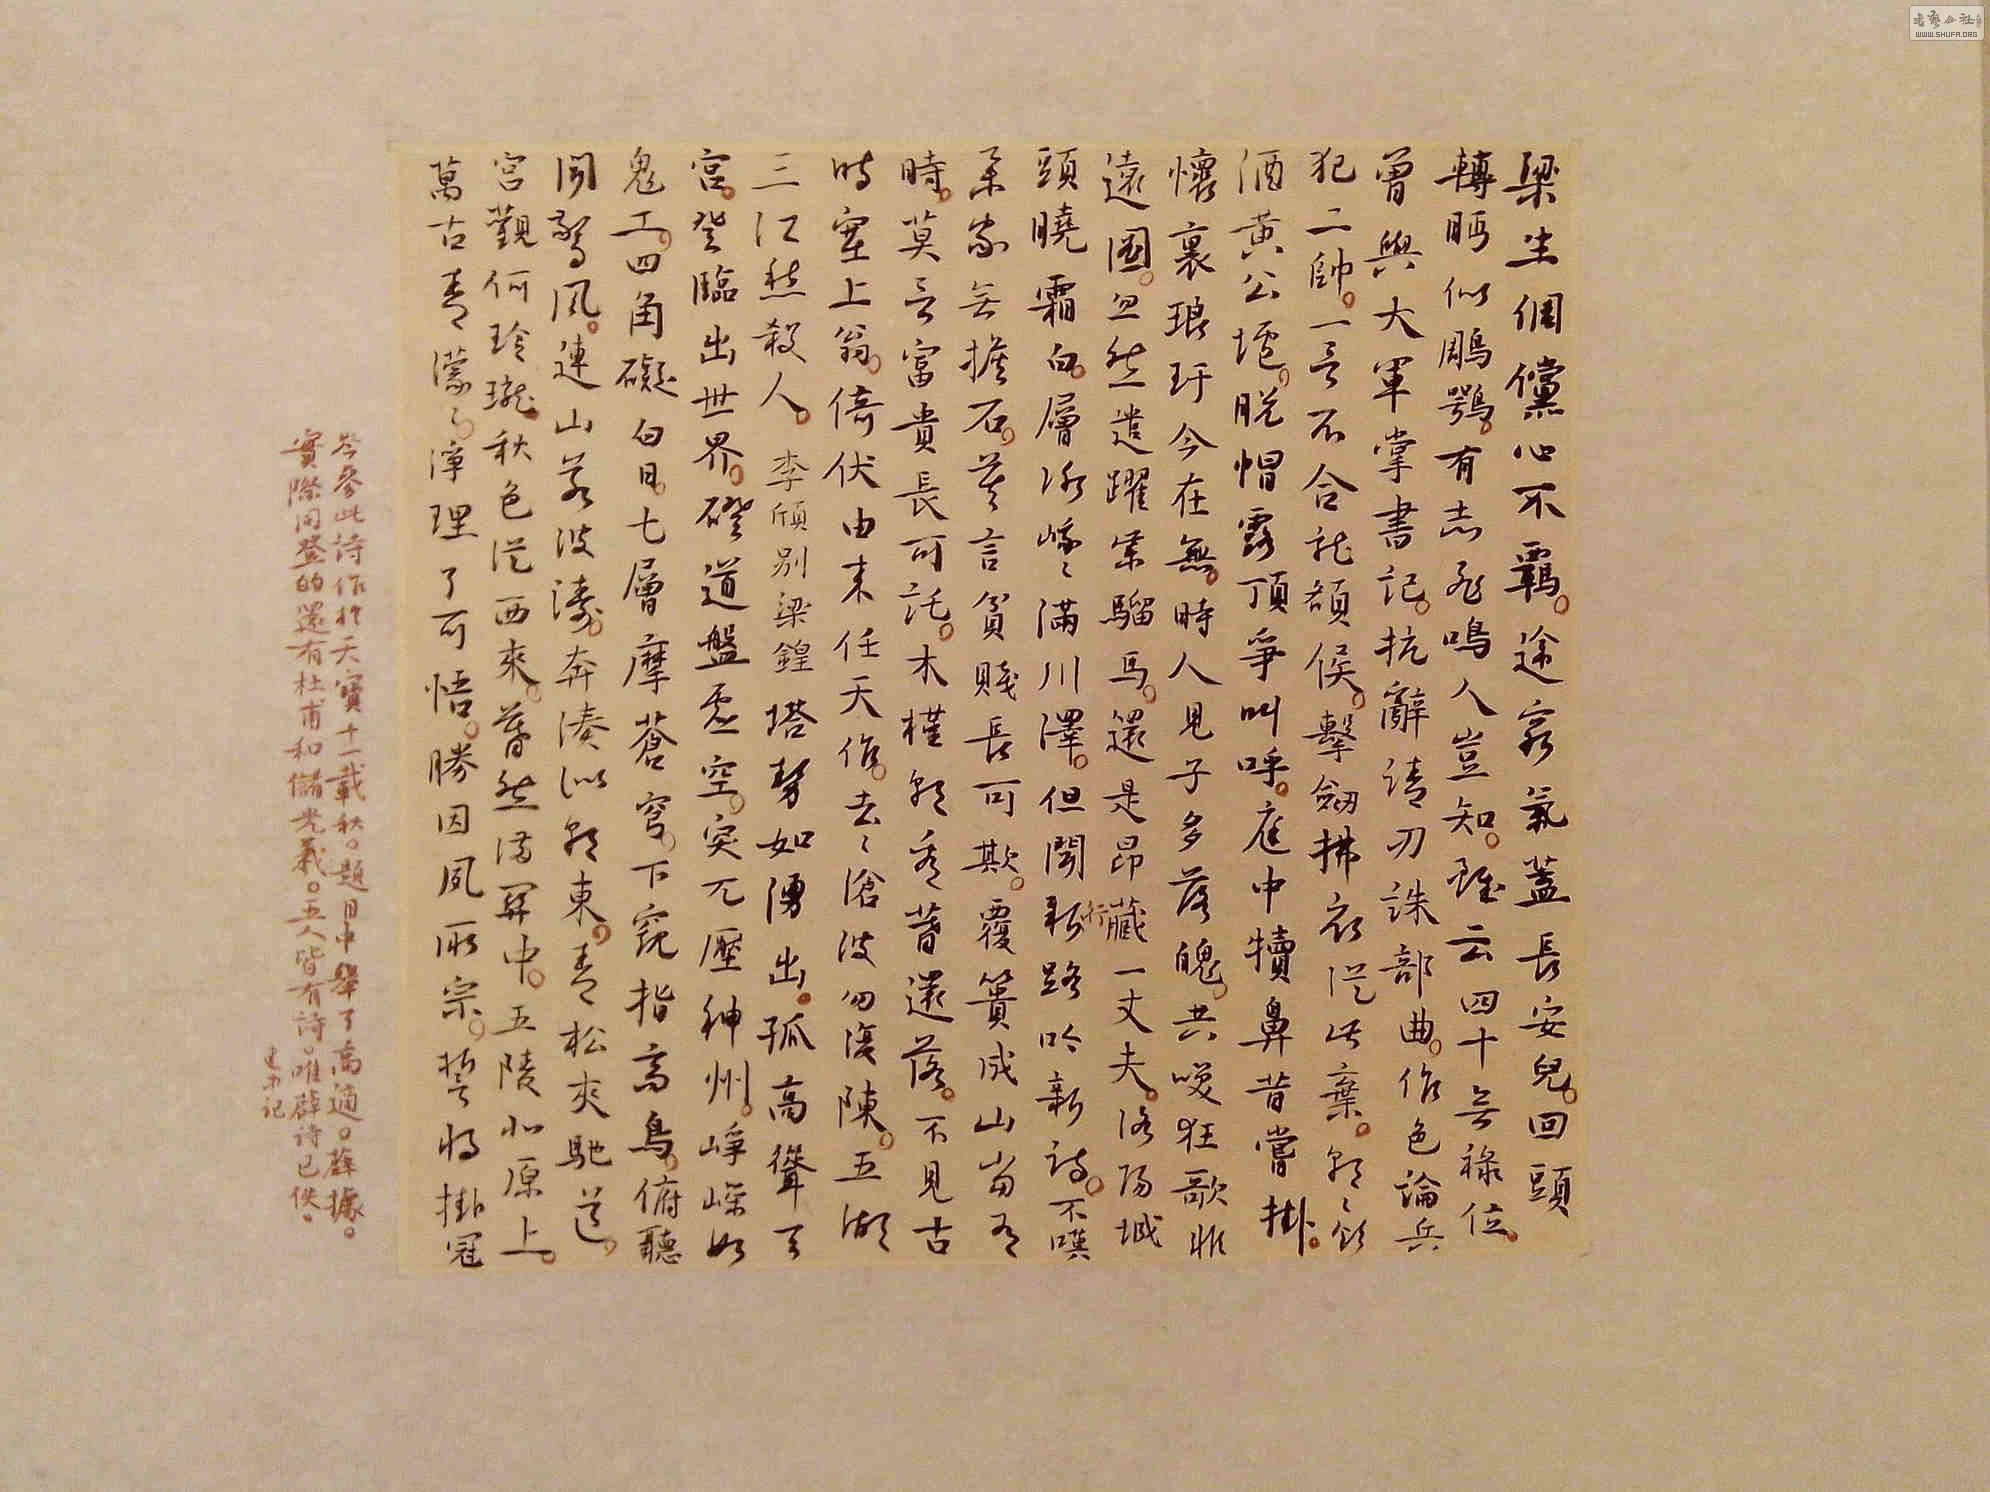 梁生倜儻心不羈。途窮氣蓋長安兒。回頭
轉眄似鵰鶚。有志飛鳴人豈知。雖云四十無祿位。
曾與大軍掌書記。抗辭請刃誅部曲。作色論兵
犯二帥。一言不合龍額侯。擊劍拂衣從此棄。朝々飲
酒黃公壚。脫帽露頂爭叫呼。庭中犢鼻昔嘗掛。
懷裏琅玕今在無。時人見子多落魄。共笑狂歌非
遠圖。忽然遣躍紫騮馬。還是昂藏一丈夫。洛陽城
頭曉霜白。層冰峨々滿川澤。但聞新行路吟新詩。不嘆
舉家無擔石。莫言貧賤長可欺。覆簣成山當有
時。莫言富貴長可託。木槿朝看暮還落。不見古
時塞上翁。倚伏由來任天作。去々滄波勿復陳。五湖
三江愁殺人。李頎別梁鍠 塔勢如湧出。孤高聳天
宮。登臨出世界。磴道盤虛空。突兀壓神州。崢嶸如
鬼工。四角礙白日。七層摩蒼穹。下窺指高鳥。俯聽
聞驚風。連山若波濤。奔湊似朝東。青松夾馳道。
宮觀何玲瓏。秋色從西來。蒼然滿關中。五陵北原上。
萬古青濛々。淨理了可悟。勝因夙所宗。誓將掛冠
岑參此詩作於天寶十一載秋。題目中舉了高適。薛據。
實際同登的還有杜甫和儲光羲。五人皆有詩。唯薛詩已佚。
記
書藝公社
WWW.SHUFA.ORG